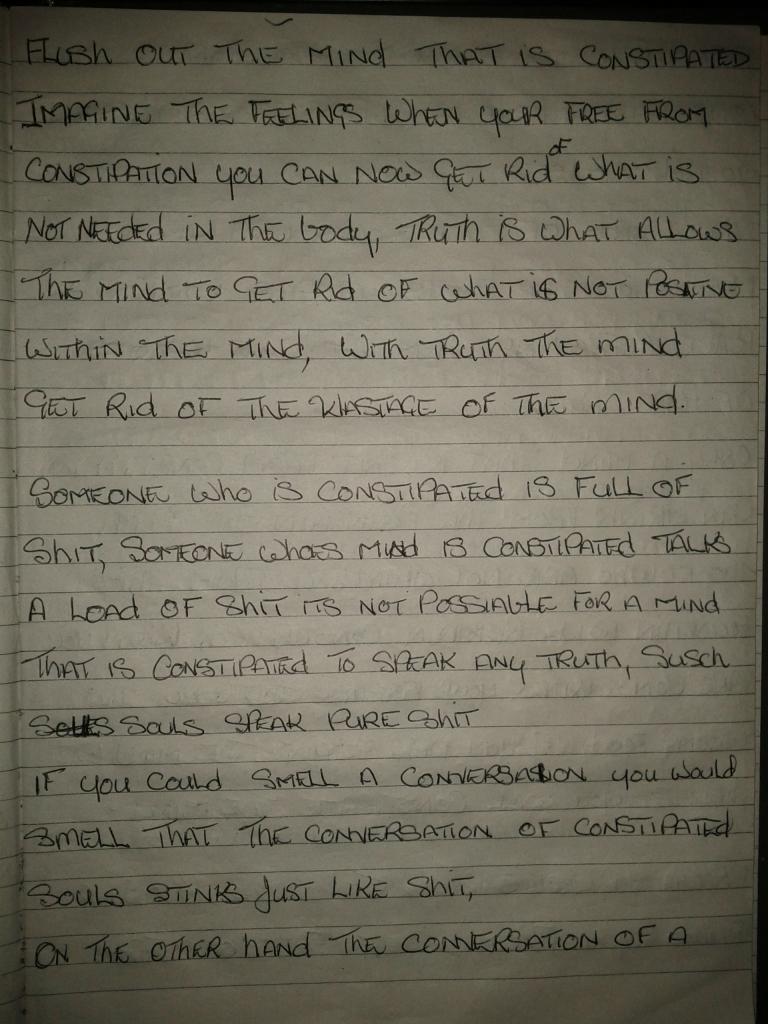 FLUSH OUT THE MIND THAT IS CONSTIPATED
IMAGINE THE FEELINGS WHEN YOUR FREE FROM
CONSTIPATION YOU CAN NOW GET RID OF WHAT IS
NOT NEEDED IN THE BODY, TRUTH IS WHAT ALLOWS
THE MIND TO GET RID OF WHAT IS NOT POSITIVE
WITHIN THE MIND, WITH TRUTH THE MIND
GET RID OF THE WASTAGE OF THE MIND.
SOMEONE WHO IS CONSTIPATED IS FULL OF
SHIT, SOMEONE WHOES MIND IS CONSTIPATED TALKS
A LOAD OF SHIT ITS NOT POSSIABLE FOR A MIND
THAT IS CONSTIPATED TO SPEAK ANY TRUTH, SUSCH
SOULS SPEAK PURE SHIT
IF YOU COULD SMELL A CONVERSASION YOU WOULD
SMELL THAT THE CONVERSATION OF CONSTIPATED
SOULS STINKS JUST LIKE SHIT,
ON THE OTHER HAND THE CONVERSATION OF A